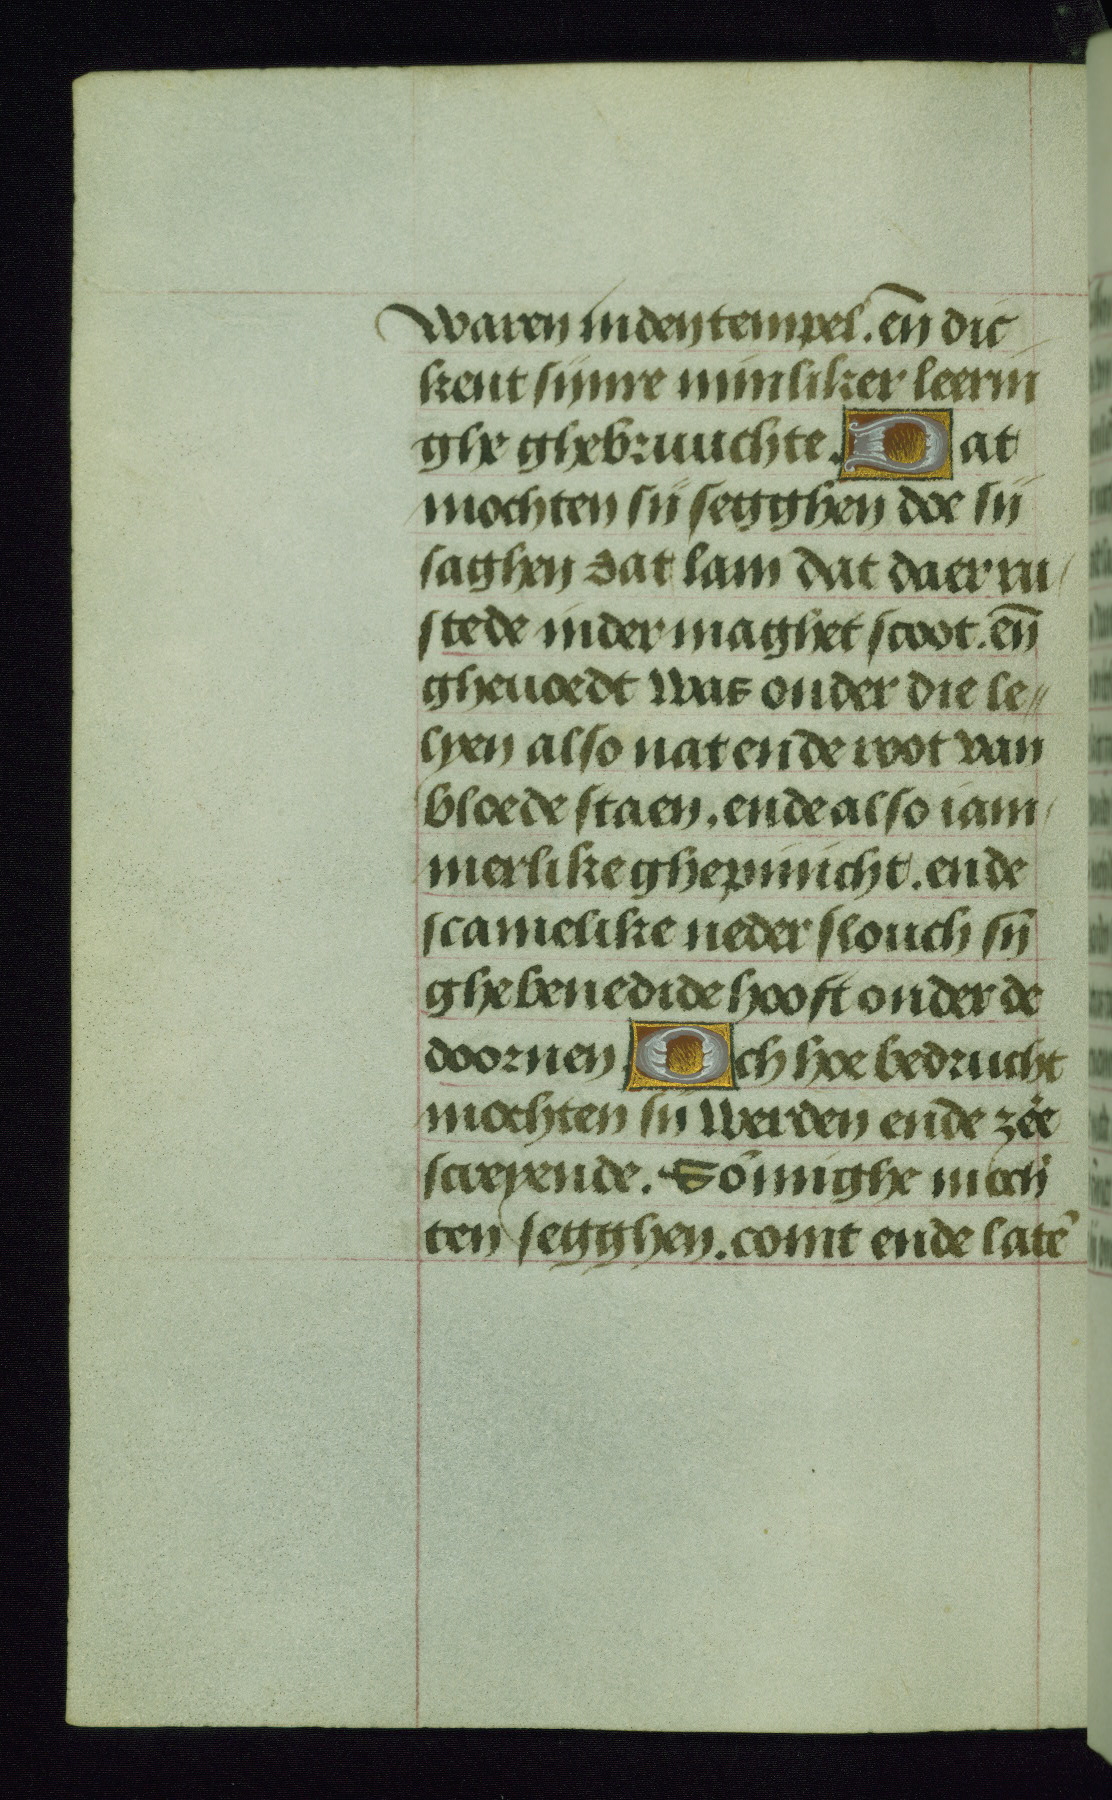 waren inden tempel. en̄ dic
kent sijnre minliker leerin
ghe ghebruuchte. Dat
mochten sij segghen doe sij
saghen dat lam dat daer ru
stede inder maghet scoot. en̄
gheuoedt was onder die le〃
lyen also nat ende root van
bloede staen. ende also iam
merlike ghepinicht. ende
scamelike neder slouch sij̄
ghebenedide hooft onder de
doornen. Och hoe bedrucht
mochten sij werden ende zée
screyende. Sōmighe moch
ten segghen. comt ende latē